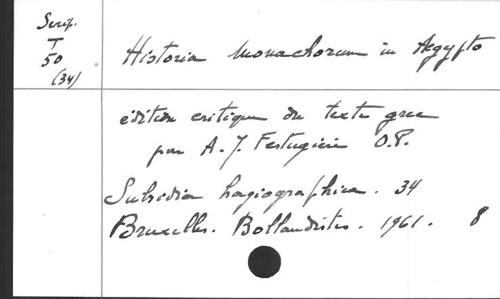 Scrip.
T
50
(34)
Historia Monachorum in Aegypto
édition critique du texte grec
par A. J. Festugière O.P.
Subsidia hagiographica. 34
Bruxelles. Bollandistes. 1961. 8